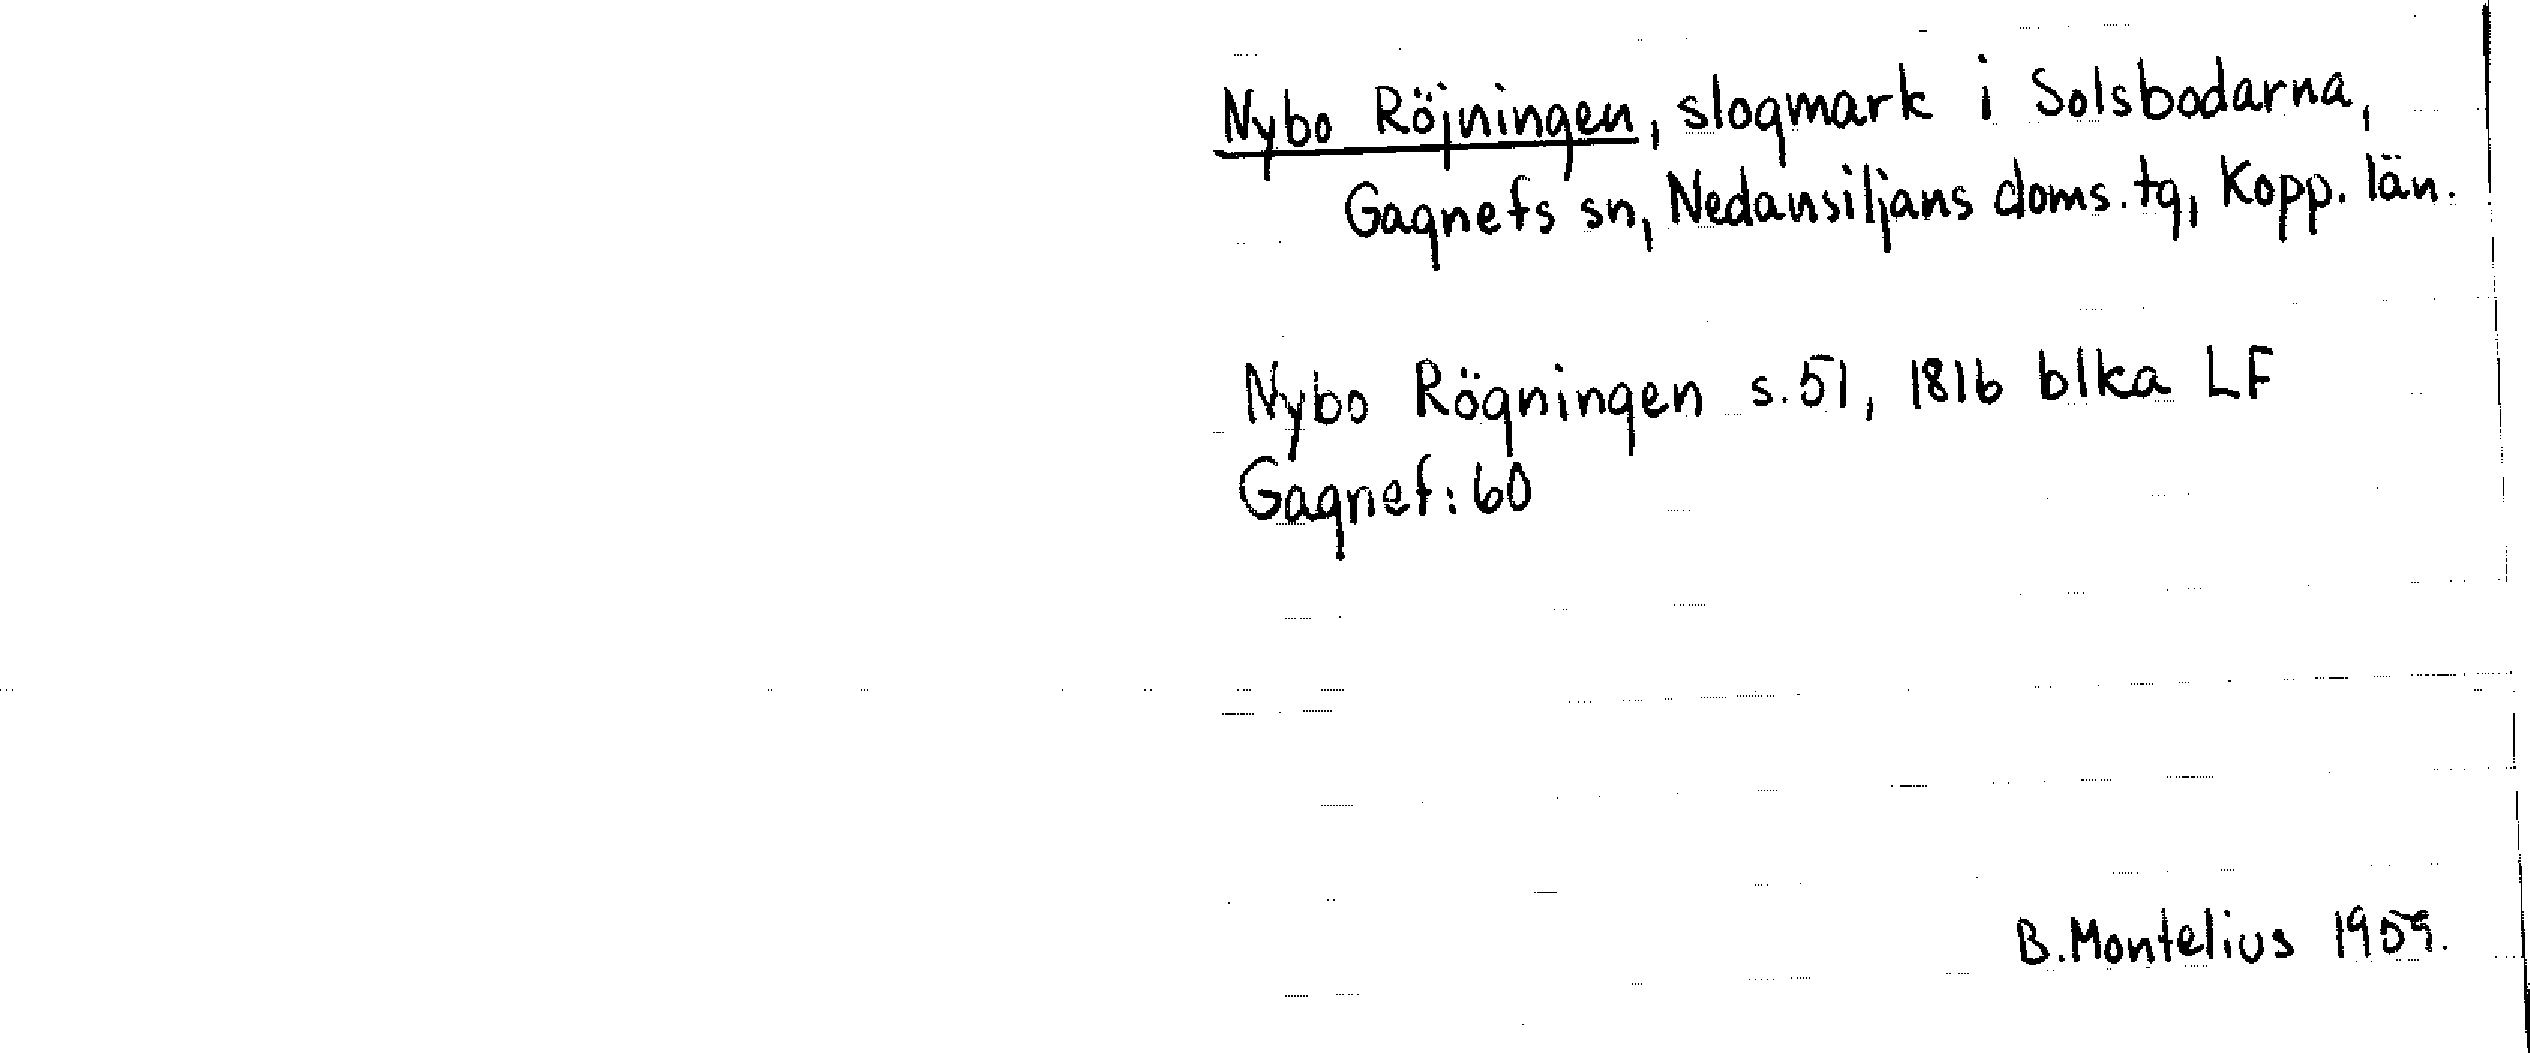 Nybo Röjningen, slogmark i Solsbodarna,
Gagnefs sn, Nedansiljans doms. tg, Kopp. län.
Nybo Rögningen s. 51, 1816 blka LF
Gagnef: 60
B. Montelius 1959.